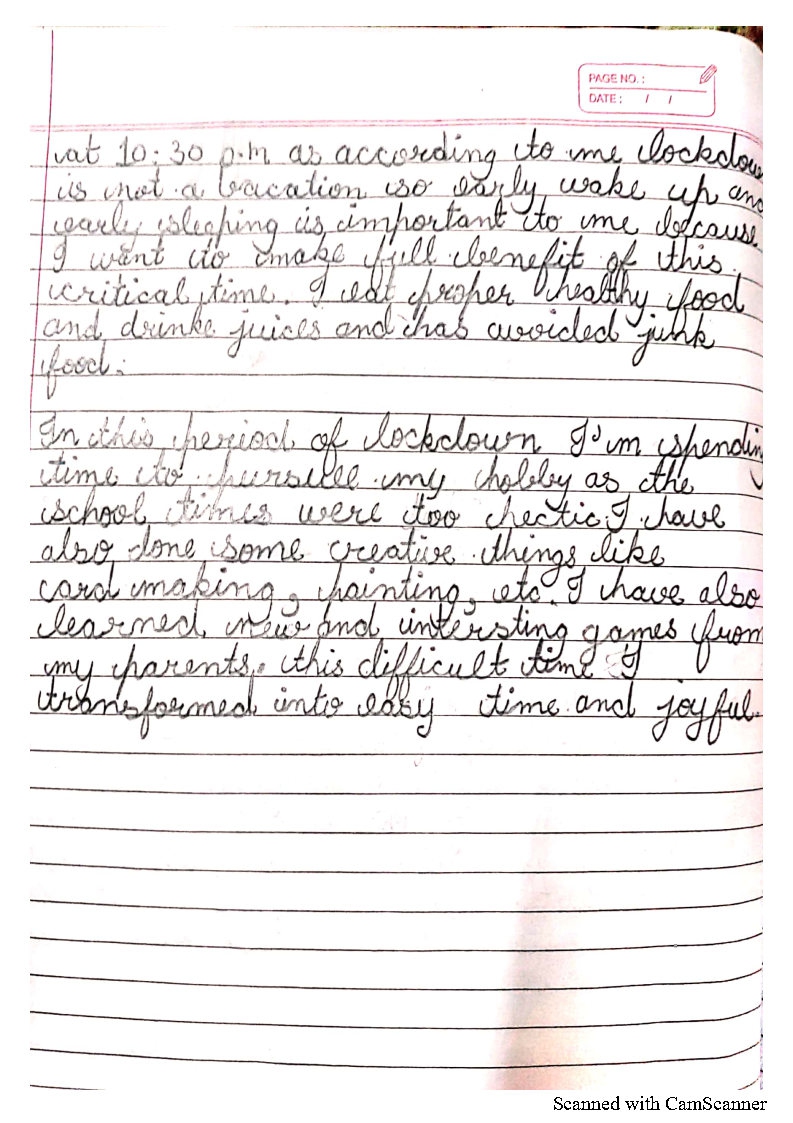 PAGE NO. :
DATE : / /
at 10:30 p.m as according to me lockdow
is not a vacation so early wake up and
early sleeping is important to me because
I want to make full benefit of this
critical time. I eat proper healthy food
and drinke juices and has avoided junk
food.
In this period of lockdown I'm spendin
time to pursue my hobby as the
school times were too hectic. I have
also done some creative things like
card making, painting, etc. I have also
learned new and intersting games from
my parents. this difficult time I
transformed into easy time and joyful.
Scanned with CamScanner